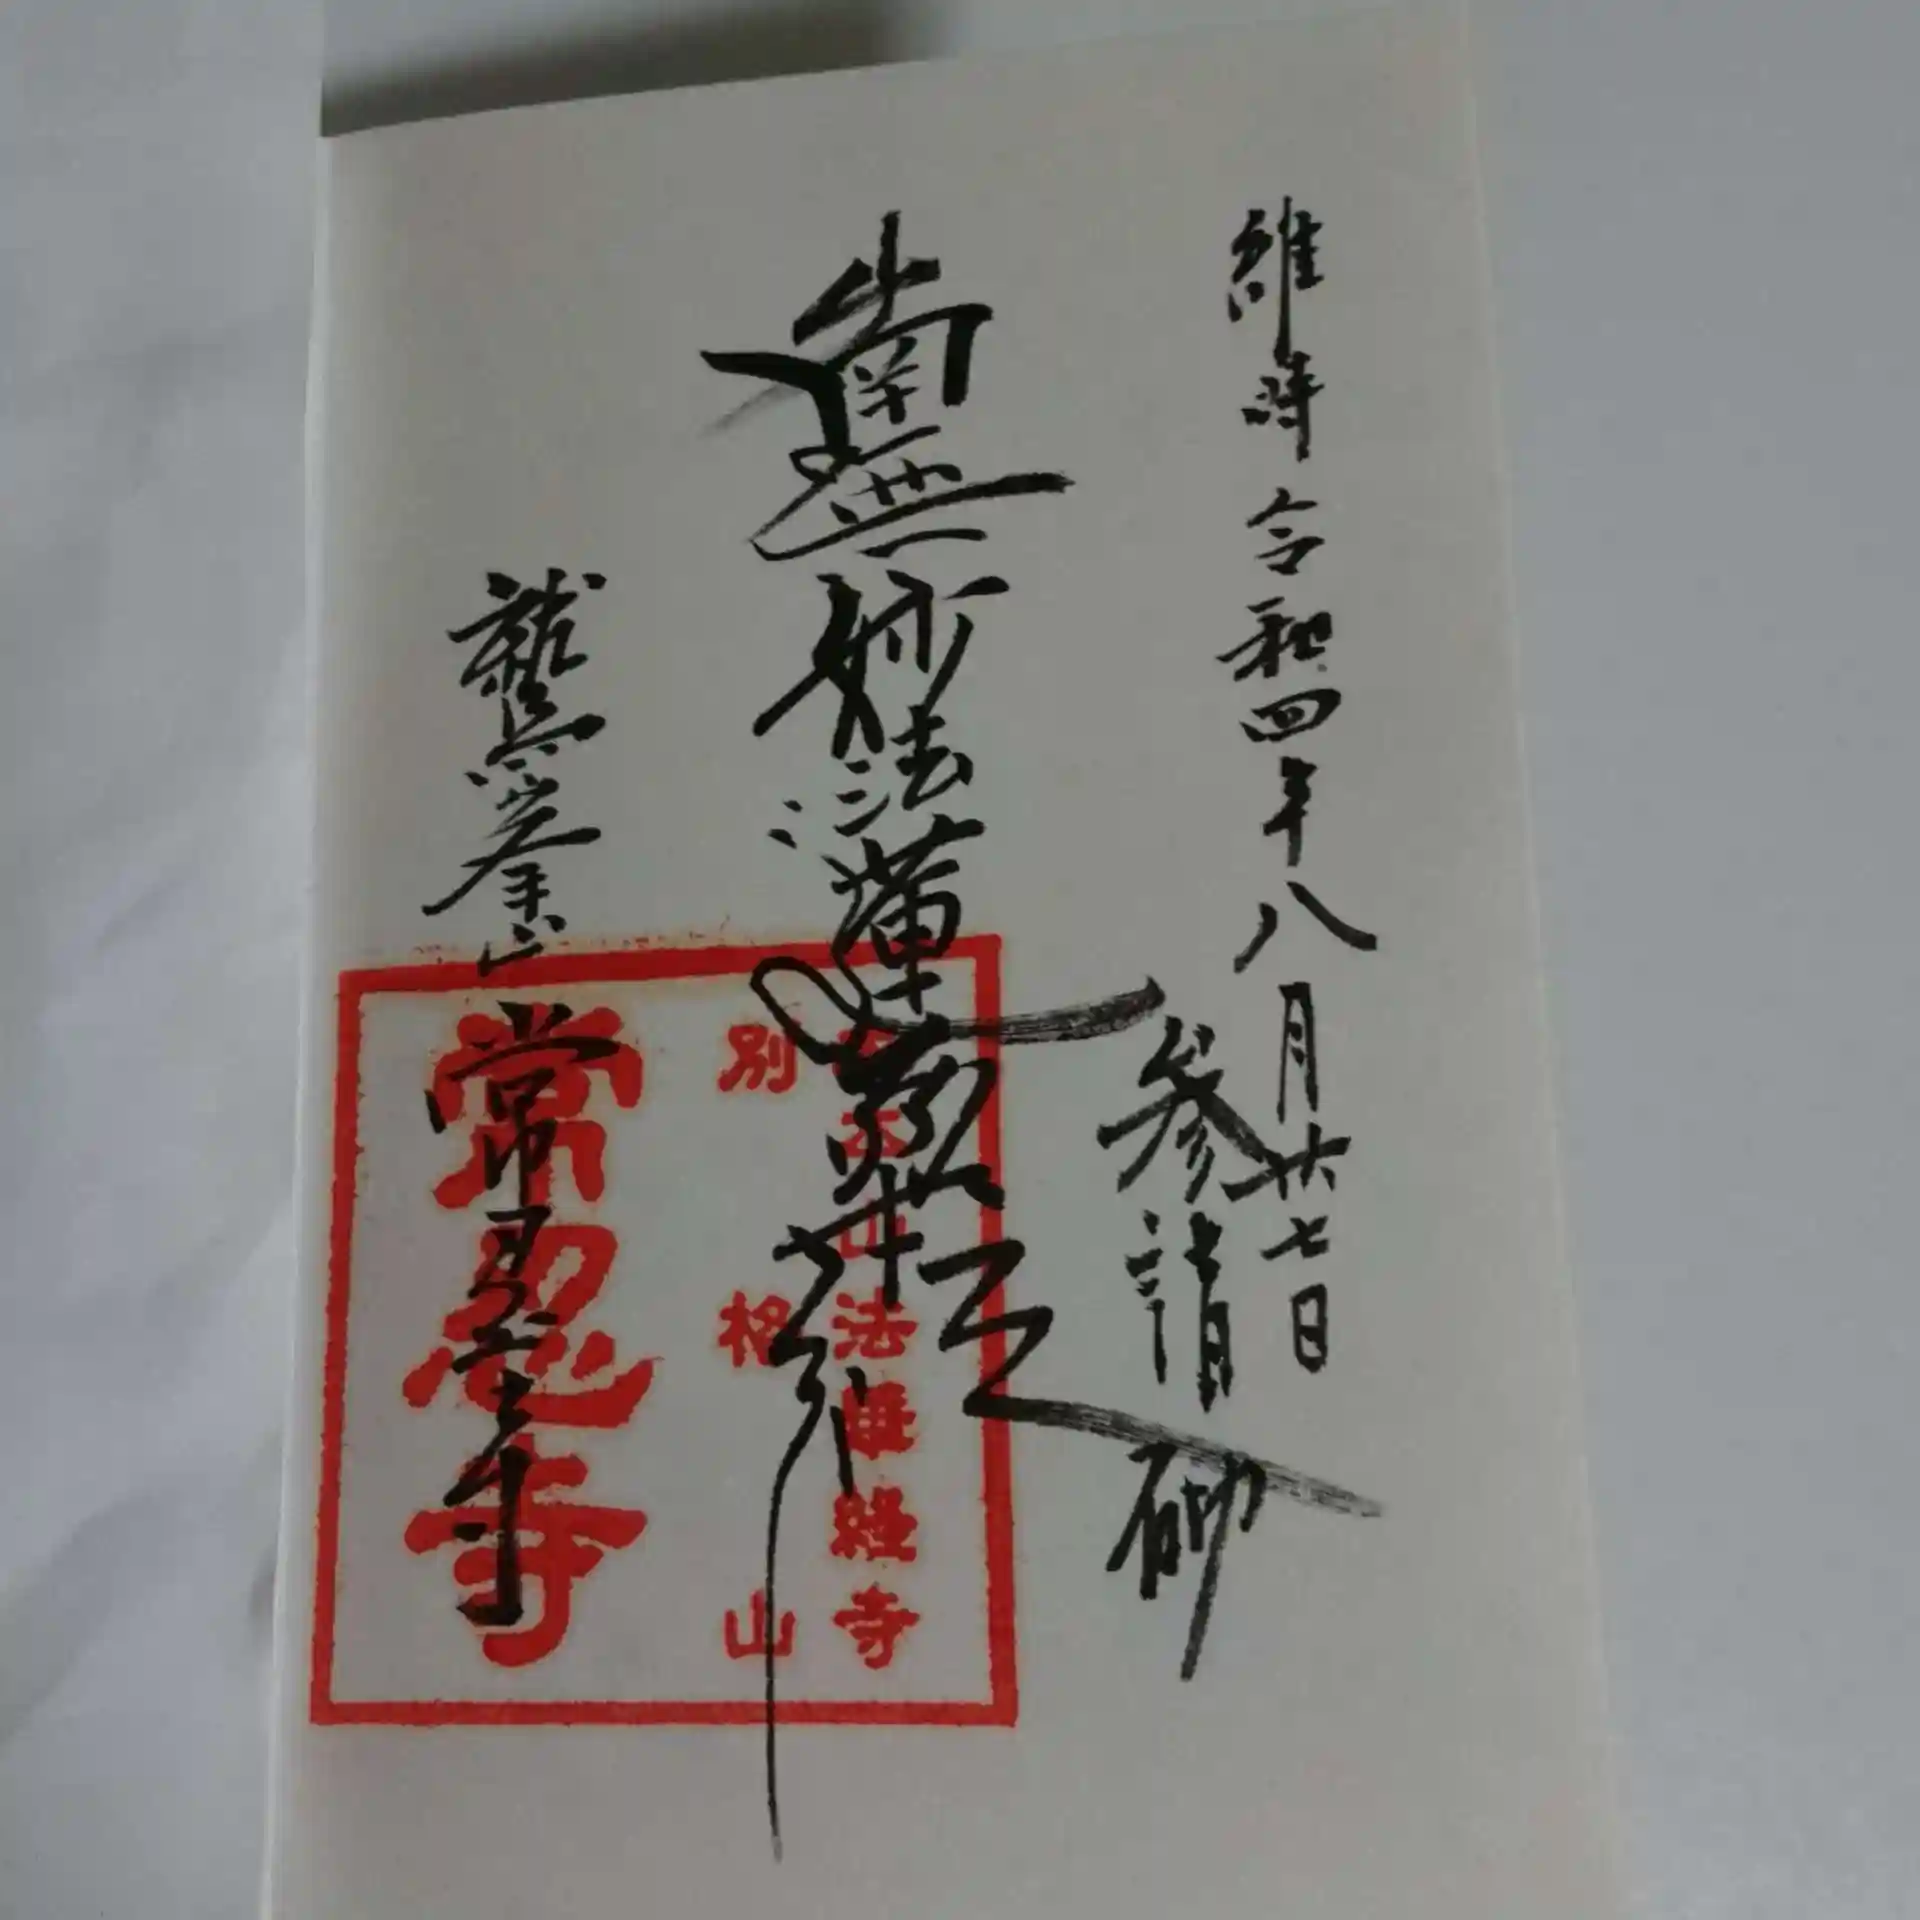 維時令和四年八月廿七日
参詣砌
南無妙法蓮華経
鷲峯山 常忍寺
大本山法華経寺
別格山
常忍寺